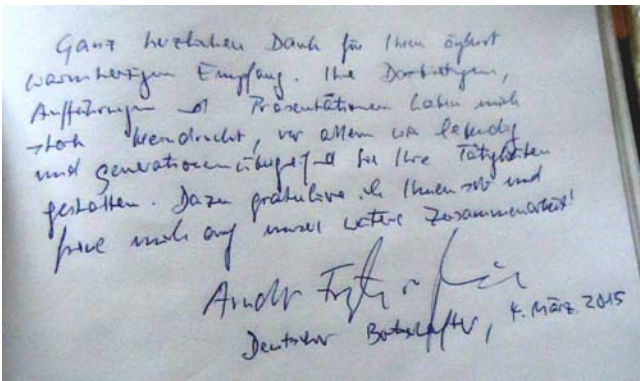 Ganz herzlichen Dank für Ihren äußerst
warmherzigen Empfang. Ihre Darbietungen,
Aufführungen und Präsentationen haben mich
stark beeindruckt, vor allem wie lebendig
und generationenübergreifend Sie Ihre Tätigkeiten
gestalten. Dazu gratuliere ich Ihnen sehr und
freue mich auf unsere weitere Zusammenarbeit!
Arndt Freytag von
Deutscher Botschafter, 4. März 2015